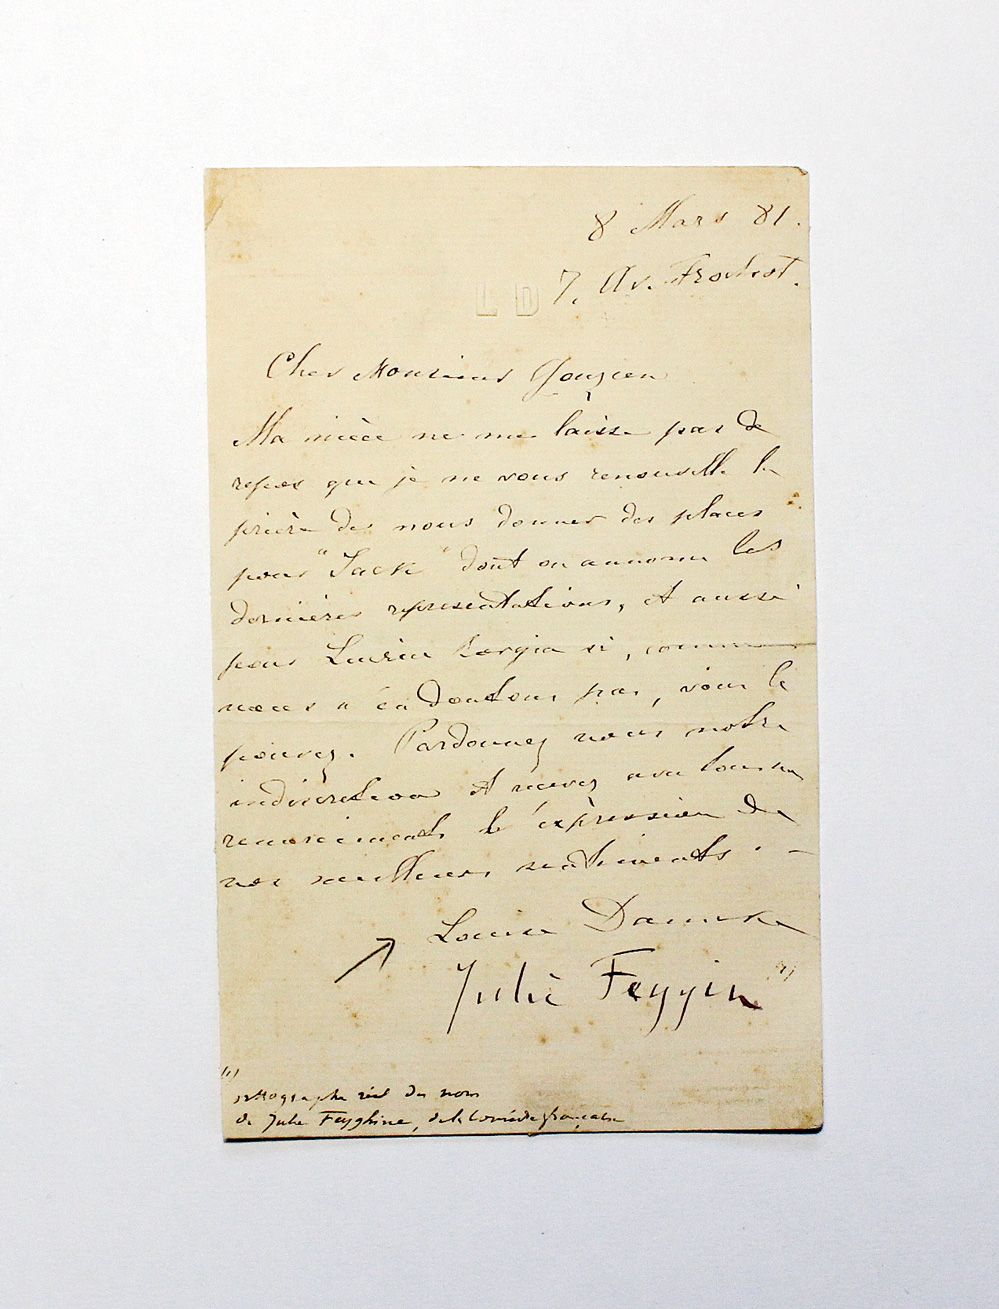 8 Mars 81.
7. Av. Frochot.
L D
Cher Monsieur Gouzien
Ma nièce ne me laisse pas de
repos que je ne vous renouvelle la
prière de nous donner des places
pour "Jack" dont on annonce les
dernières représentations, et aussi
pour Lucrèce Borgia si, comme
nous n'en doutons pas, vous le
pouvez. Pardonnez nous notre
indiscrétion et recevez avec tous nos
remerciments l'expression de
nos meilleurs sentiments. —
Louise Damcke
Julie Feyghin (1)
(1)
orthographe réel du nom
de Julie Feyghine, de la Comédie française